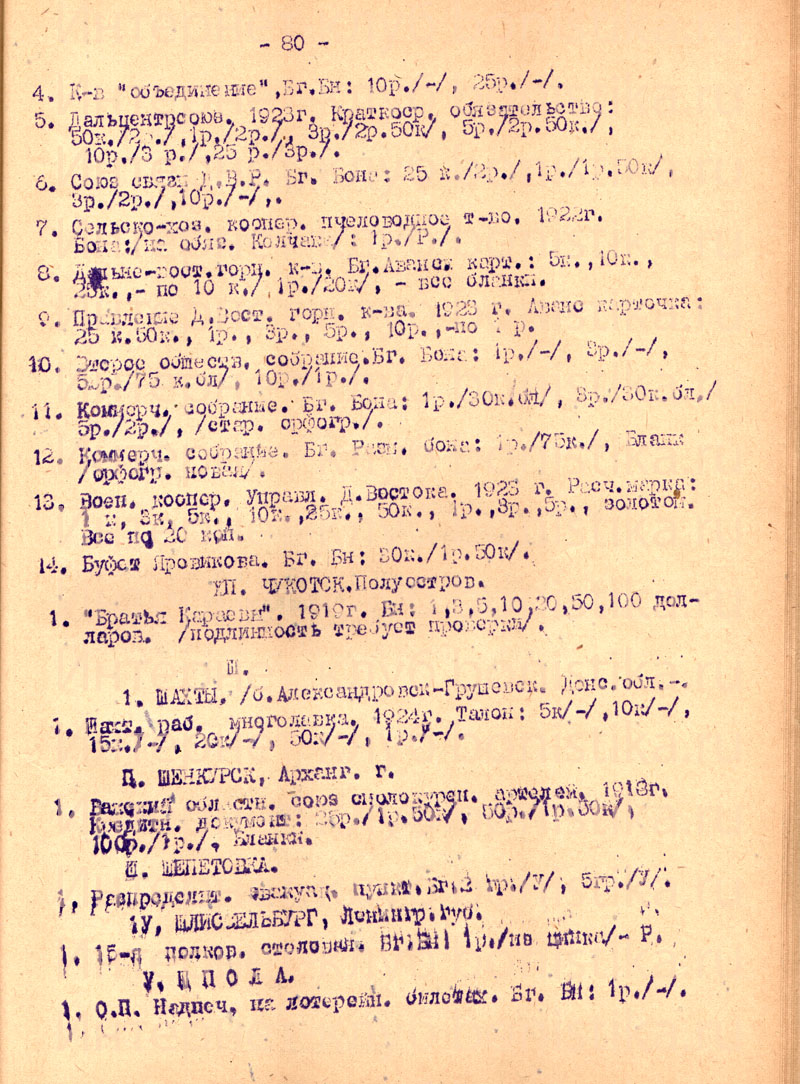 - 80 -
4. К-в "объединение",Бг.Бн: 10р./-/, 25р./-/.
5. Дальцентрсоюз. 1923г. Краткоср. обязательство:
50к./2р./,1р./2р./, 3р./2р.50к/, 5р./2р.50к./,
10р./3 р./,25 р./3р./.
6. Союз связи Д.В.Р. Бг. Бона: 25 к./2р./,1р./1р.50к/,
3р./2р./,10р./-/,.
7. Сельско-хоз. коопер. пчеловодное т-во. 1922г.
Бона:/на обяз. Колчака/: 1р./Р./.
8. Дальне-вост.горн. к-в. Бг.Авансн. карт.: 5к.,10к.,
25к.,- по 10 к./,1р./20к/, - все бланки.
9. Правление Д.Вост. горн. к-ва. 1923 г. Аванс карточка:
25 к.50к., 1р., 3р., 5р., 10р.,-по 1 р.
10. Второе обществ. собрание.Бг. Бона: 1р./-/, 3р./-/,
5р./75 к.бл/, 10р./1р./.
11. Коммерч. собрание. Бг. Бона: 1р./30к.бл/, 3р./30к.бл./
5р./2р./, /стар. орфогр./.
12. Коммерч. собрание. Бг. Разн. бона: 1р./75к./, Бланк
/орфогр. новая/.
13. Воен. коопер. Управл. Д.Востока. 1923 г. Расч.марка:
1 к, 3к, 5к., 10к.,25к., 50к., 1р.,3р.,5р., золотом.
Все по 20 коп.
14. Буфет Яровикова. Бг. Бн: 30к./1р.50к/.
ЧУКОТСК.Полуостров.
1. "Братья Караевы". 1919г. Бн: 1,3,5,10,20,50,100 дол-
ларов. /подлинность требует проверки/.
Ш.
1. ШАХТЫ, /б.Александровск-Грушевск. Донс.обл.-.
1. Шахт. раб. многолавка. 1924г. Талон: 5к/-/,10к/-/,
15к./-/, 20к/-/, 50к/-/, 1р./-/.
П. ШЕНКУРСК, Арханг. г.
1. Важский областн. союз смолокурен. артелей. 1918г.
Кредитн. документ: 25р./1р.50к/, 50р./1р.50к/,
100р./1р./, Бланки.
Ш. ШЕПЕТОВКА.
1. Распределит. эвакуац. пункт.Бг.2 1р./У/, 5р./У/.
1У, ШЛИССЕЛЬБУРГ, Ленингр.губ.
1. 15-я полков. столовая. Бг.Бн 1р./на цинке/- Р.
У. ШПОЛА.
1. О.П. Надпеч. на лотерейн. билетах. Бг. Бн: 1р./-/.